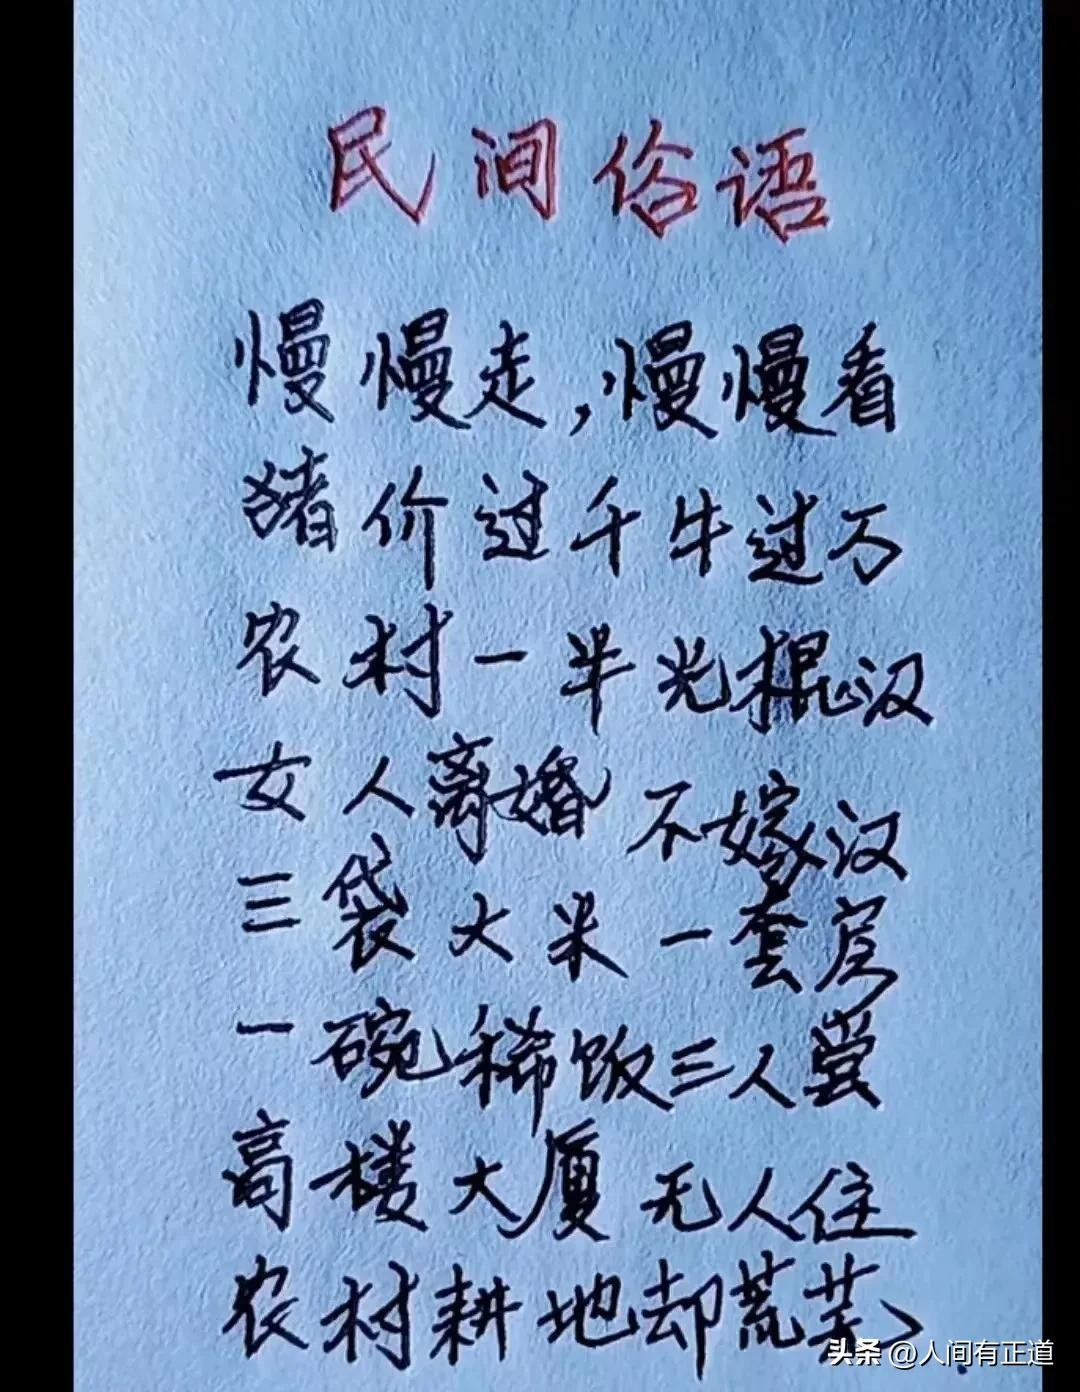 民间俗语
慢慢走,慢慢看
猪价过千牛过万
农村一半光棍汉
女人离婚不嫁汉
三袋大米一套房
一碗稀饭三人尝
高楼大厦无人住
农村耕地却荒芜
头条 @人间有正道